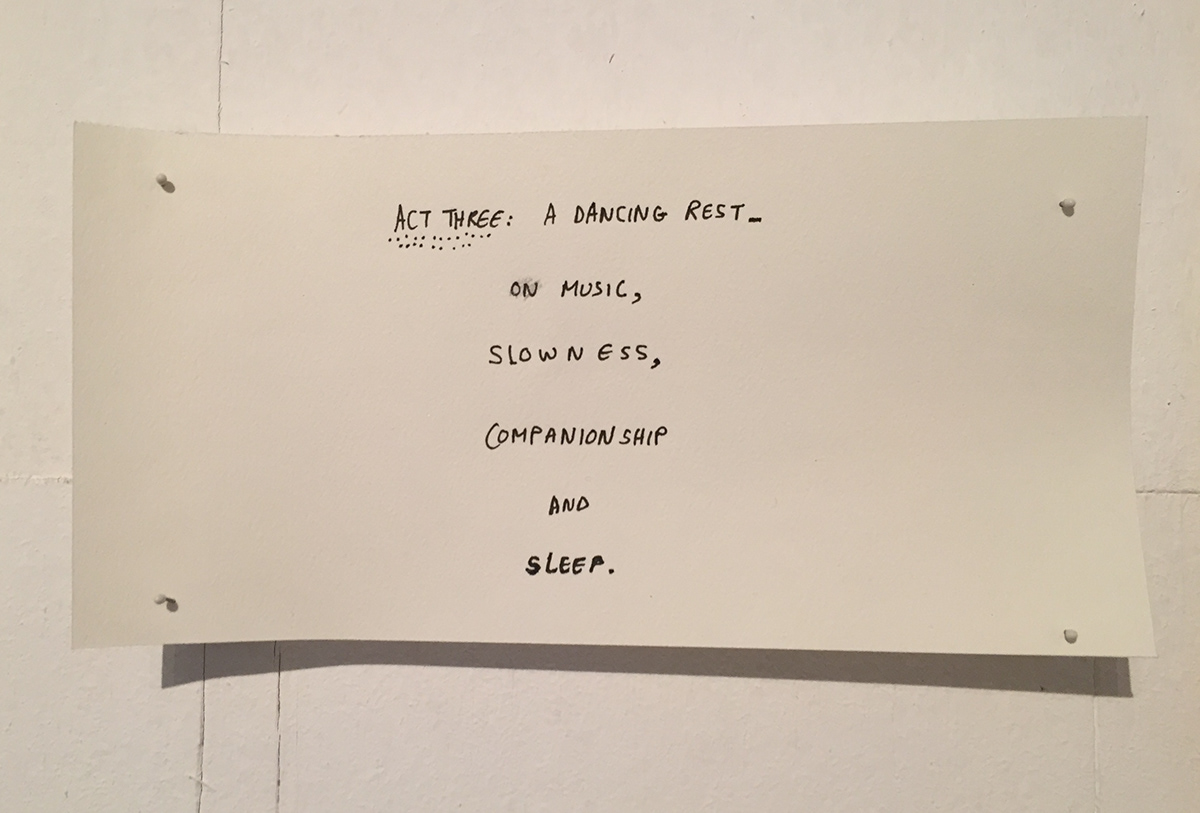 ACT THREE: A DANCING REST_
ON MUSIC,
SLOWNESS,
COMPANIONSHIP
AND
SLEEP.